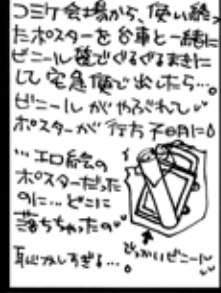 コミケ会場から、使い終っ
たポスターを台車と一緒に
ビニール袋でぐるぐるまきに
して宅急便で出したら…。
ビニールがやぶれて
ポスターが行方不明に
…エロ絵の
ポスターだった
のに…どこに
落ちちゃったの
恥ずかしすぎる…。
でっかいビニール